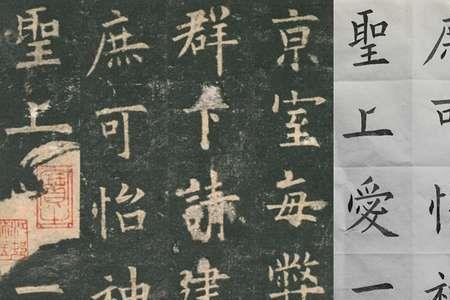 京室每弊
群下請建
庶可怡神
聖上一
聖上愛一